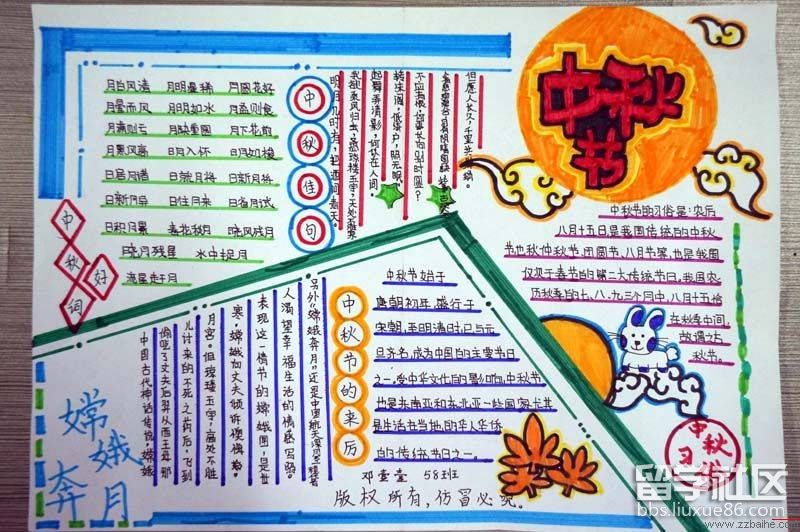 中秋节
月白风清 月明星稀 月圆花好
月晕而风 月明如水 月盈则食
月满则亏 月缺重圆 月下花前
月黑风高 日月入怀 日月如梭
日居月诸 日就月将 日新月异
日往月来 日省月试
日积月累 春花秋月 晓风残月
晓月残星 水中捉月
流星赶月
中秋好词
中秋佳句
明月几时有，把酒问青天。
我欲乘风归去，
起舞弄清影，何似在人间。
转朱阁，低绮户，照无眠。
不应有恨，何事长向别时圆？
但愿人长久，千里共婵娟。
中秋节的习俗是：农历
八月十五日是我国传统的中秋
节也称仲秋节、团圆节、八月节等，也是我国
仅次于春节的第二大传统节日，我国农
历秋季的七、八、九三个月中，八月十五恰
在秋季中间
故谓之
秋节。
中秋
习俗
中秋节的来历
中秋节始于
唐朝初年，盛行于
宋朝，至明清时已与元
旦齐名，成为中国的主要节日
之一。受中华文化的影响，中秋节
也是东南亚和东北亚一些国家尤其
是生活在当地的华人华侨
的传统节日之一。
嫦娥
奔月
中国古代神话传说，嫦娥
偷吃了丈夫后羿从西王母那
儿讨来的不死之药后，飞到
月宫。但琼楼玉宇，高处不胜
寒，嫦娥向丈夫倾诉懊悔
表现这一情节的嫦娥图，是世
人渴望幸福生活的情感写照。
58班
版权所有，仿冒必究。
留学社区
bbs.liuxue86.com
www.zzbaihe.com